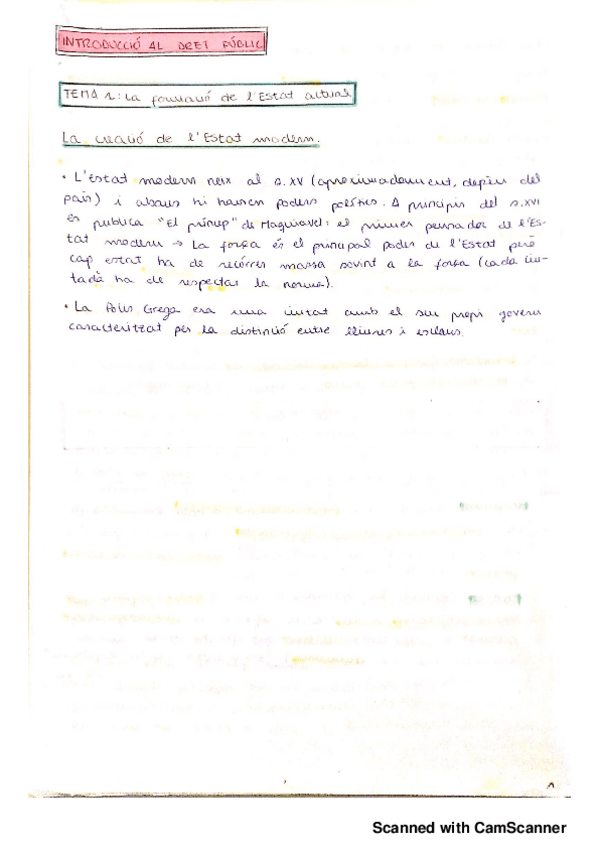 INTRODUCCIÓ AL DRET PÚBLIC
TEMA 1: La formació de l'Estat actual
La creació de l'Estat modern.
• L'estat modern neix al s. XV (aproximadament, depèn del
país) i abans hi havien poders polítics. A principis del s. XVI
es publica "El príncep" de Maquiavel: el primer pensador de l'Es-
tat modern → La força és el principal poder de l'Estat però
cap estat ha de recórrer massa sovint a la força (cada ciu-
tadà ha de respectar la norma).
• La Polis Grega era una ciutat amb el seu propi govern
caracteritzat per la distinció entre lliures i esclaus.
1
Scanned with CamScanner